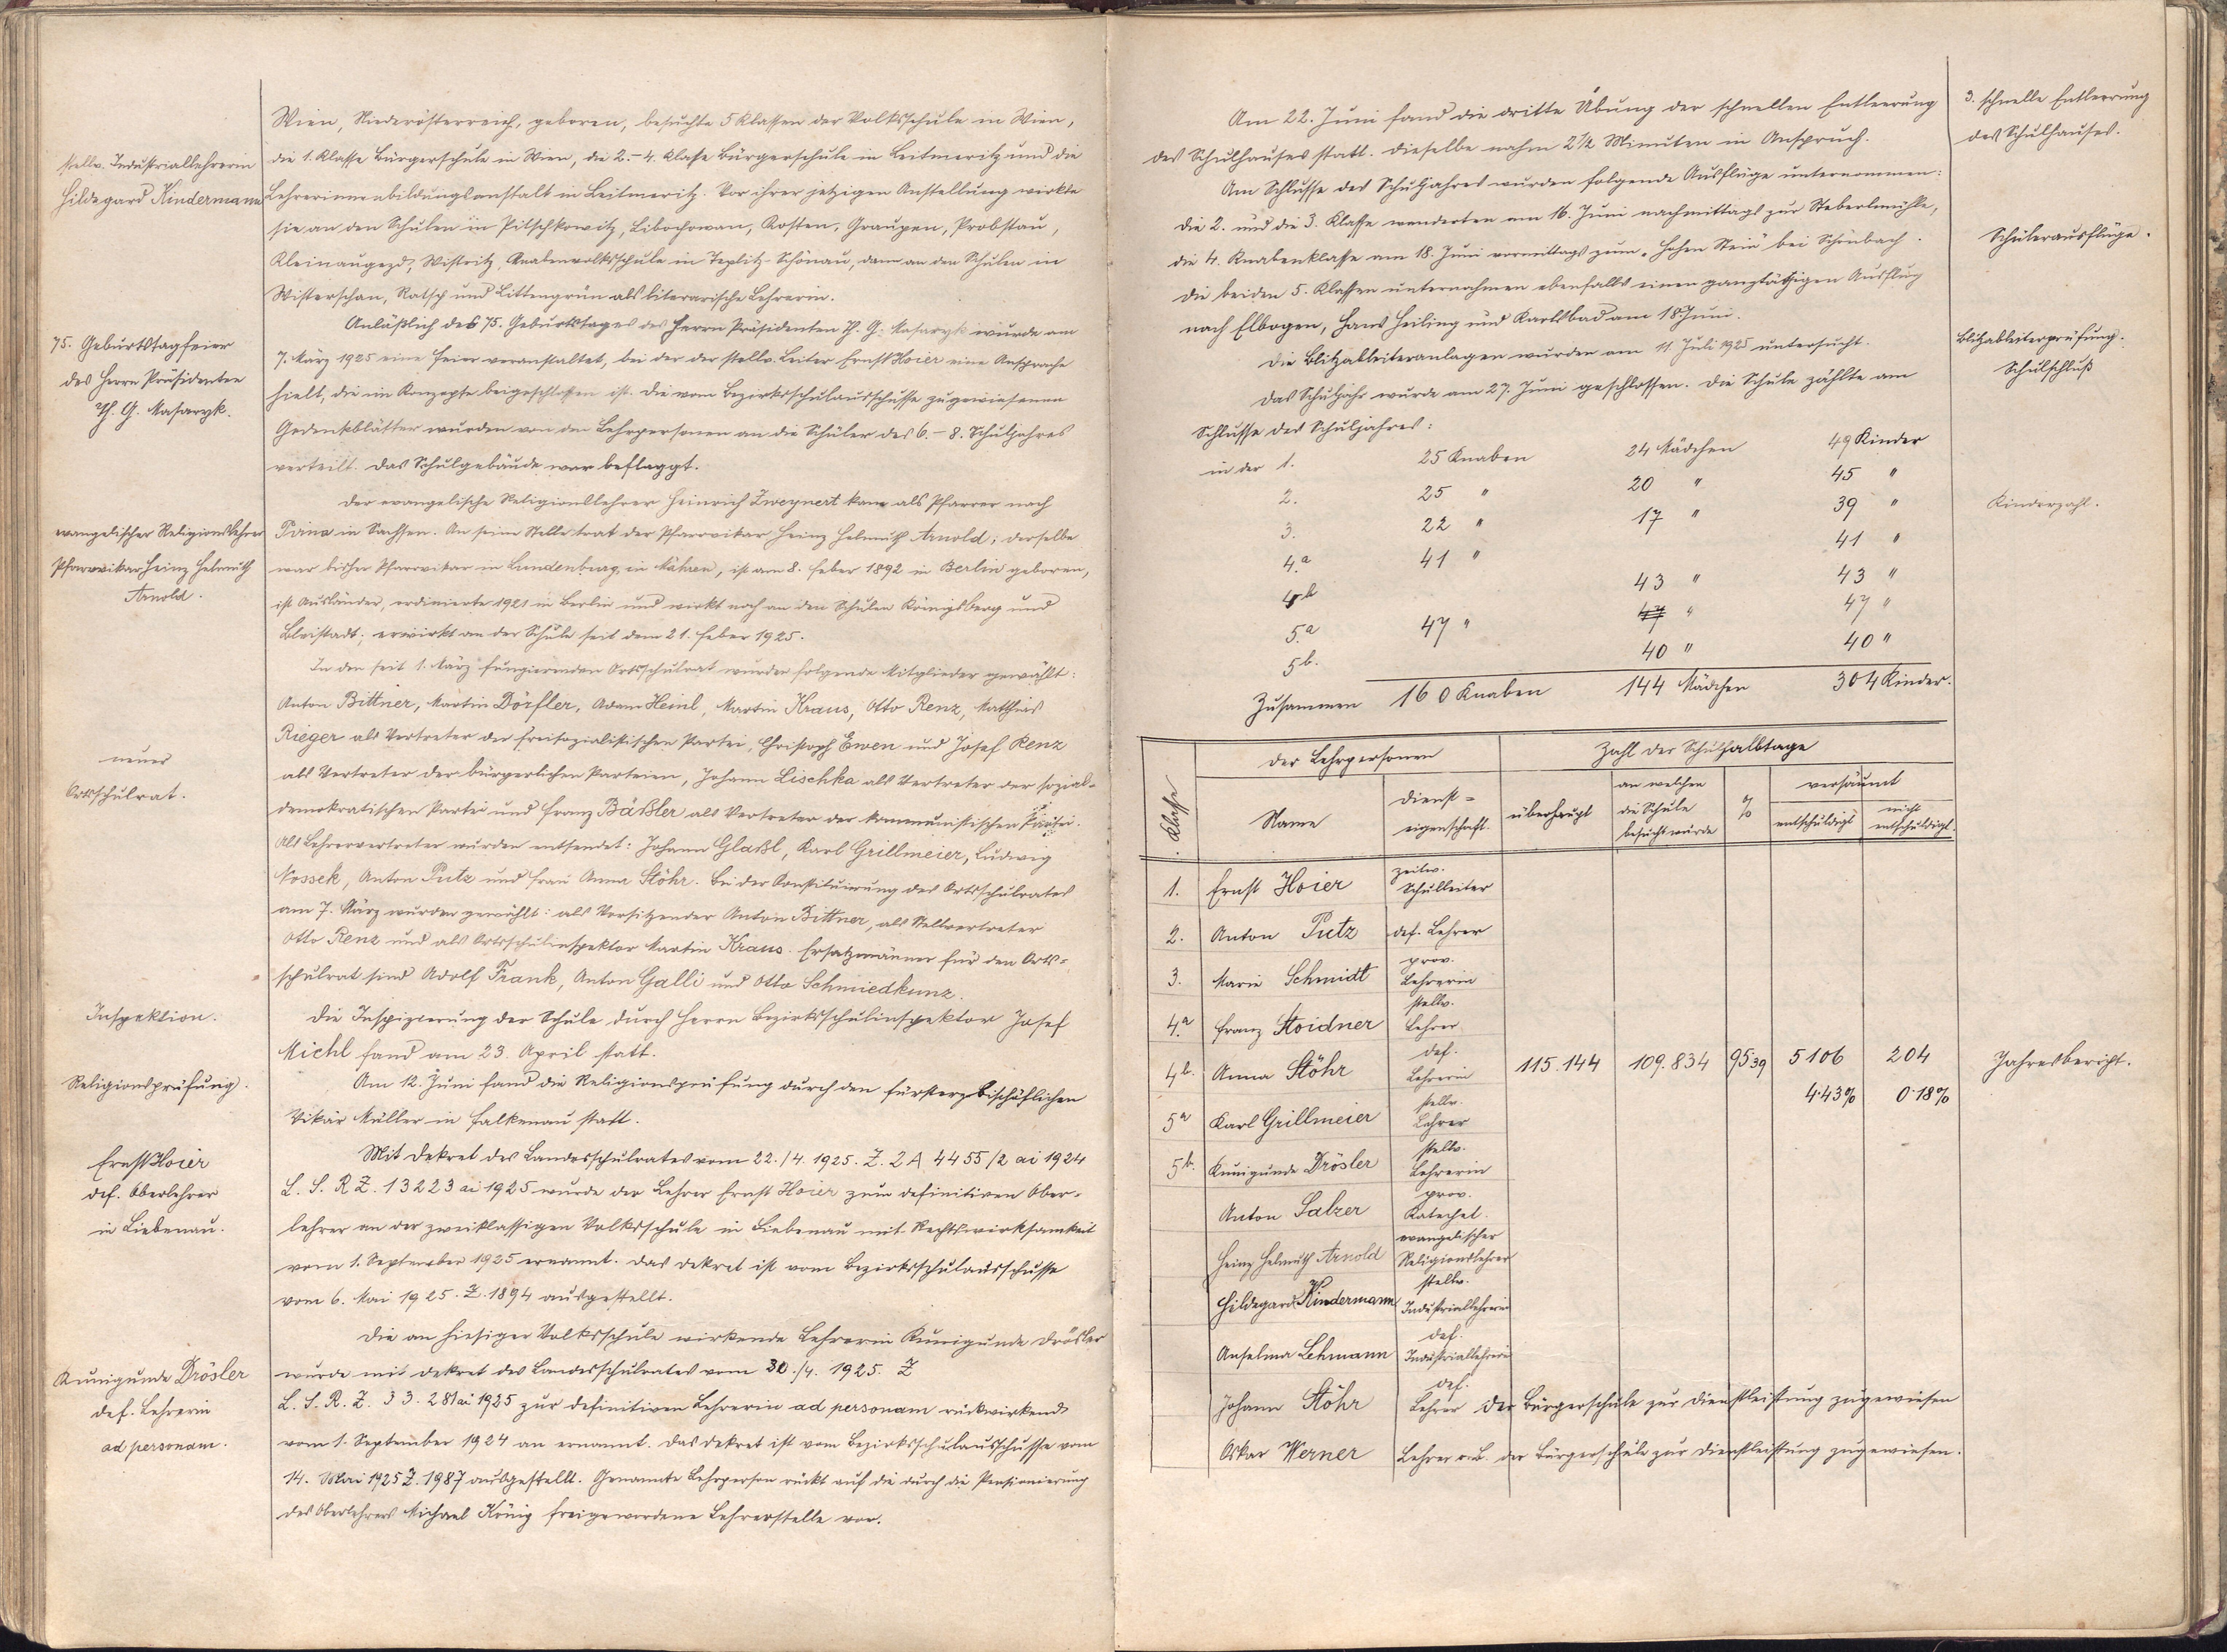 Wien, Niederösterreich, geboren, besuchte 5 Klassen der Volksschule in Wien,
stellv. Industriallehrerin
die 1. Klasse Bürgerschule in Wien, die 2.-4. Klasse Bürgerschule in Leitmeritz und die
Hildegard Kindermann
Lehrerinnenbildungsanstalt in Leitmeritz. Vor ihrer jetzigen Anstellung wirkte
sie an den Schulen in Pitschkowitz, Libochowan, Kosten, Graupen, Probstau,
Kleinaugezd, Wistritz, Knabenvolksschule in Teplitz-Schönau, dann an den Schulen in
Wisterschan, Ratsch und Littengrün als literarische Lehrerin.
75. Geburtstagfeier
des Herrn Präsidenten
Th. G. Masaryk.
Anläßlich des 75. Geburtstages des Herrn Präsidenten Th. G. Masaryk wurde am
7. März 1925 eine Feier veranstaltet, bei der der stellv. Leiter Ernst Hoier eine Ansprache
hielt, die im Konzepte beigeschlossen ist. Die vom Bezirksschulausschusse zugewiesenen
Gedenkblätter wurden von den Lehrpersonen an die Schüler des 6.-8. Schuljahres
verteilt. Das Schulgebäude war beflaggt.
evangelischer Religionslehrer
Pfarrvikar Heinz Helmuth
Arnold.
Der evangelische Religionslehrer Heinrich Zweynert kam als Pfarrer nach
Pirna in Sachsen. An seine Stelle trat der Pfarrvikar Heinz Helmuth Arnold; derselbe
war bisher Pfarrvikar in Lundenburg, in Mähren, ist am 8. Feber 1892 in Berlin geboren,
ist Ausländer, ordinierte 1921 in Berlin und wirkt noch an den Schulen Königsberg und
Bleistadt; er wirkt an der Schule seit dem 21. Feber 1925.
neuer
Ortsschulrat.
In den seit 1. März fungierenden Ortsschulrat wurden folgende Mitglieder gewählt:
Anton Bittner, Martin Dörfler, Adam Heinl, Martin Kraus, Otto Renz, Matthias
Rieger als Vertreter der freisozialistischen Partei, Christoph Ewen und Josef Renz
als Vertreter der bürgerlichen Parteien, Johann Lischka als Vertreter der sozial-
demokratischen Partei und Franz Bäßler als Vertreter der kommunistischen Partei.
Als Lehrervertreter wurden entsendet: Johann Glaßl, Karl Grillmeier, Ludwig
Nossek, Anton Putz und Frau Anna Stöhr. Bei der Konstituierung des Ortsschulrates
am 7. März wurden gewählt: als Vorsitzender Anton Bittner, als Stellvertreter
Otto Renz und als Ortsschulinspektor Martin Kraus. Ersatzmänner für den Orts-
schulrat sind Adolf Frank, Anton Galli und Otto Schmiedkunz.
Inspektion.
Die Inspizierung der Schule durch Herrn Bezirksschulinspektor Josef
Michl fand am 23. April statt.
Religionsprüfung.
Am 12. Juni fand die Religionsprüfung durch den fürsterzbischöflichen
Vikar Müller in Falkenau statt.
Ernst Hoier
def. Oberlehrer
in Liebenau.
Mit Dekret des Landesschulrates vom 22./4. 1925. Z. 2 A 4455/2 ai 1924
L. S. R Z. 13223 ai 1925 wurde der Lehrer Ernst Hoier zum definitiven Ober-
lehrer an der zweiklassigen Volksschule in Liebenau mit Rechtswirksamkeit
vom 1. September 1925 ernannt. Das Dekret ist vom Bezirksschulausschusse
vom 6. Mai 1925. Z. 1894 ausgestellt.
Kunigunde Drösler
def. Lehrerin
ad personam.
Die an hiesiger Volksschule wirkende Lehrerin Kunigunde Drösler
wurde mit Dekret des Landesschulrates vom 30./4. 1925. Z
L. S. R. Z. 33.281 ai 1925 zur definitiven Lehrerin ad personam rückwirkend
vom 1. September 1924 an ernannt. Das Dekret ist vom Bezirksschulausschusse vom
14. Mai 1925 Z. 1987 ausgestellt. Genannte Lehrperson rückt auf die durch die Pensionierung
des Oberlehrers Michael König freigewordene Lehrerstelle vor.
Am 22. Juni fand die dritte Übung der schnellen Entleerung
3. schnelle Entleerung
des Schulhauses statt. Dieselbe nahm 2 1/2 Minuten in Anspruch.
des Schulhauses.
Am Schlusse des Schuljahres wurden folgende Ausflüge unternommen:
Die 2. und die 3. Klasse wanderten am 16. Juni nachmittags zur Steberlmühle,
Schülerausflüge.
die 4. Knabenklasse am 18. Juni vormittags zum „Hohen Stein" bei Schönbach.
Die beiden 5. Klassen unternahmen ebenfalls einen ganztätigigen Ausflug
nach Elbogen, Hans Heiling und Karlsbad am 18. Juni.
Die Blitzableiteranlagen wurden am 11. Juli 1925 untersucht.
Blitzableiterprüfung.
Das Schuljahr wurde am 27. Juni geschlossen. Die Schule zählte am
Schulschluß
Schlusse des Schuljahres:
in der 1. 25 Knaben 24 Mädchen 49 Kinder
2. 25 " 20 " 45 "
3. 22 " 17 " 39 "
Kinderzahl.
4.a 41 " 41 "
4.b 43 " 43 "
5.a 47 " 47 " 47 "
5b. 40 " 40 "
Zusammen 160 Knaben 144 Mädchen 304 Kinder.
Klasse
der Lehrpersonen
Zahl der Schulhalbtage
Name
Dienst=
eigenschaft.
überhaupt
an welchen
die Schule
besucht wurde
%
versäumt
entschuldigt
nicht
entschuldigt.
1. Ernst Hoier zeitw. Schulleiter
2. Anton Putz def. Lehrer
3. Marie Schmidt prov. Lehrerin
4.a Franz Stoidner stellv. Lehrer
4b. Anna Stöhr def. Lehrerin 115.144 109.834 95.39 5106 204
Jahresbericht.
4.43% 0.18%
5a Karl Grillmeier stellv. Lehrer
5b. Kunigunde Drösler stellv. Lehrerin
Anton Salzer prov. Katechet.
Heinz Helmuth Arnold evangelischer Religionslehrer
Hildegard Kindermann stellv. Industriallehrerin
Anselma Lehmann def. Industriallehrerin
Johann Stöhr def. Lehrer der Bürgerschule zur Dienstleistung zugewiesen
Oskar Werner Lehrer der Bürgerschule zur Dienstleistung zugewiesen.